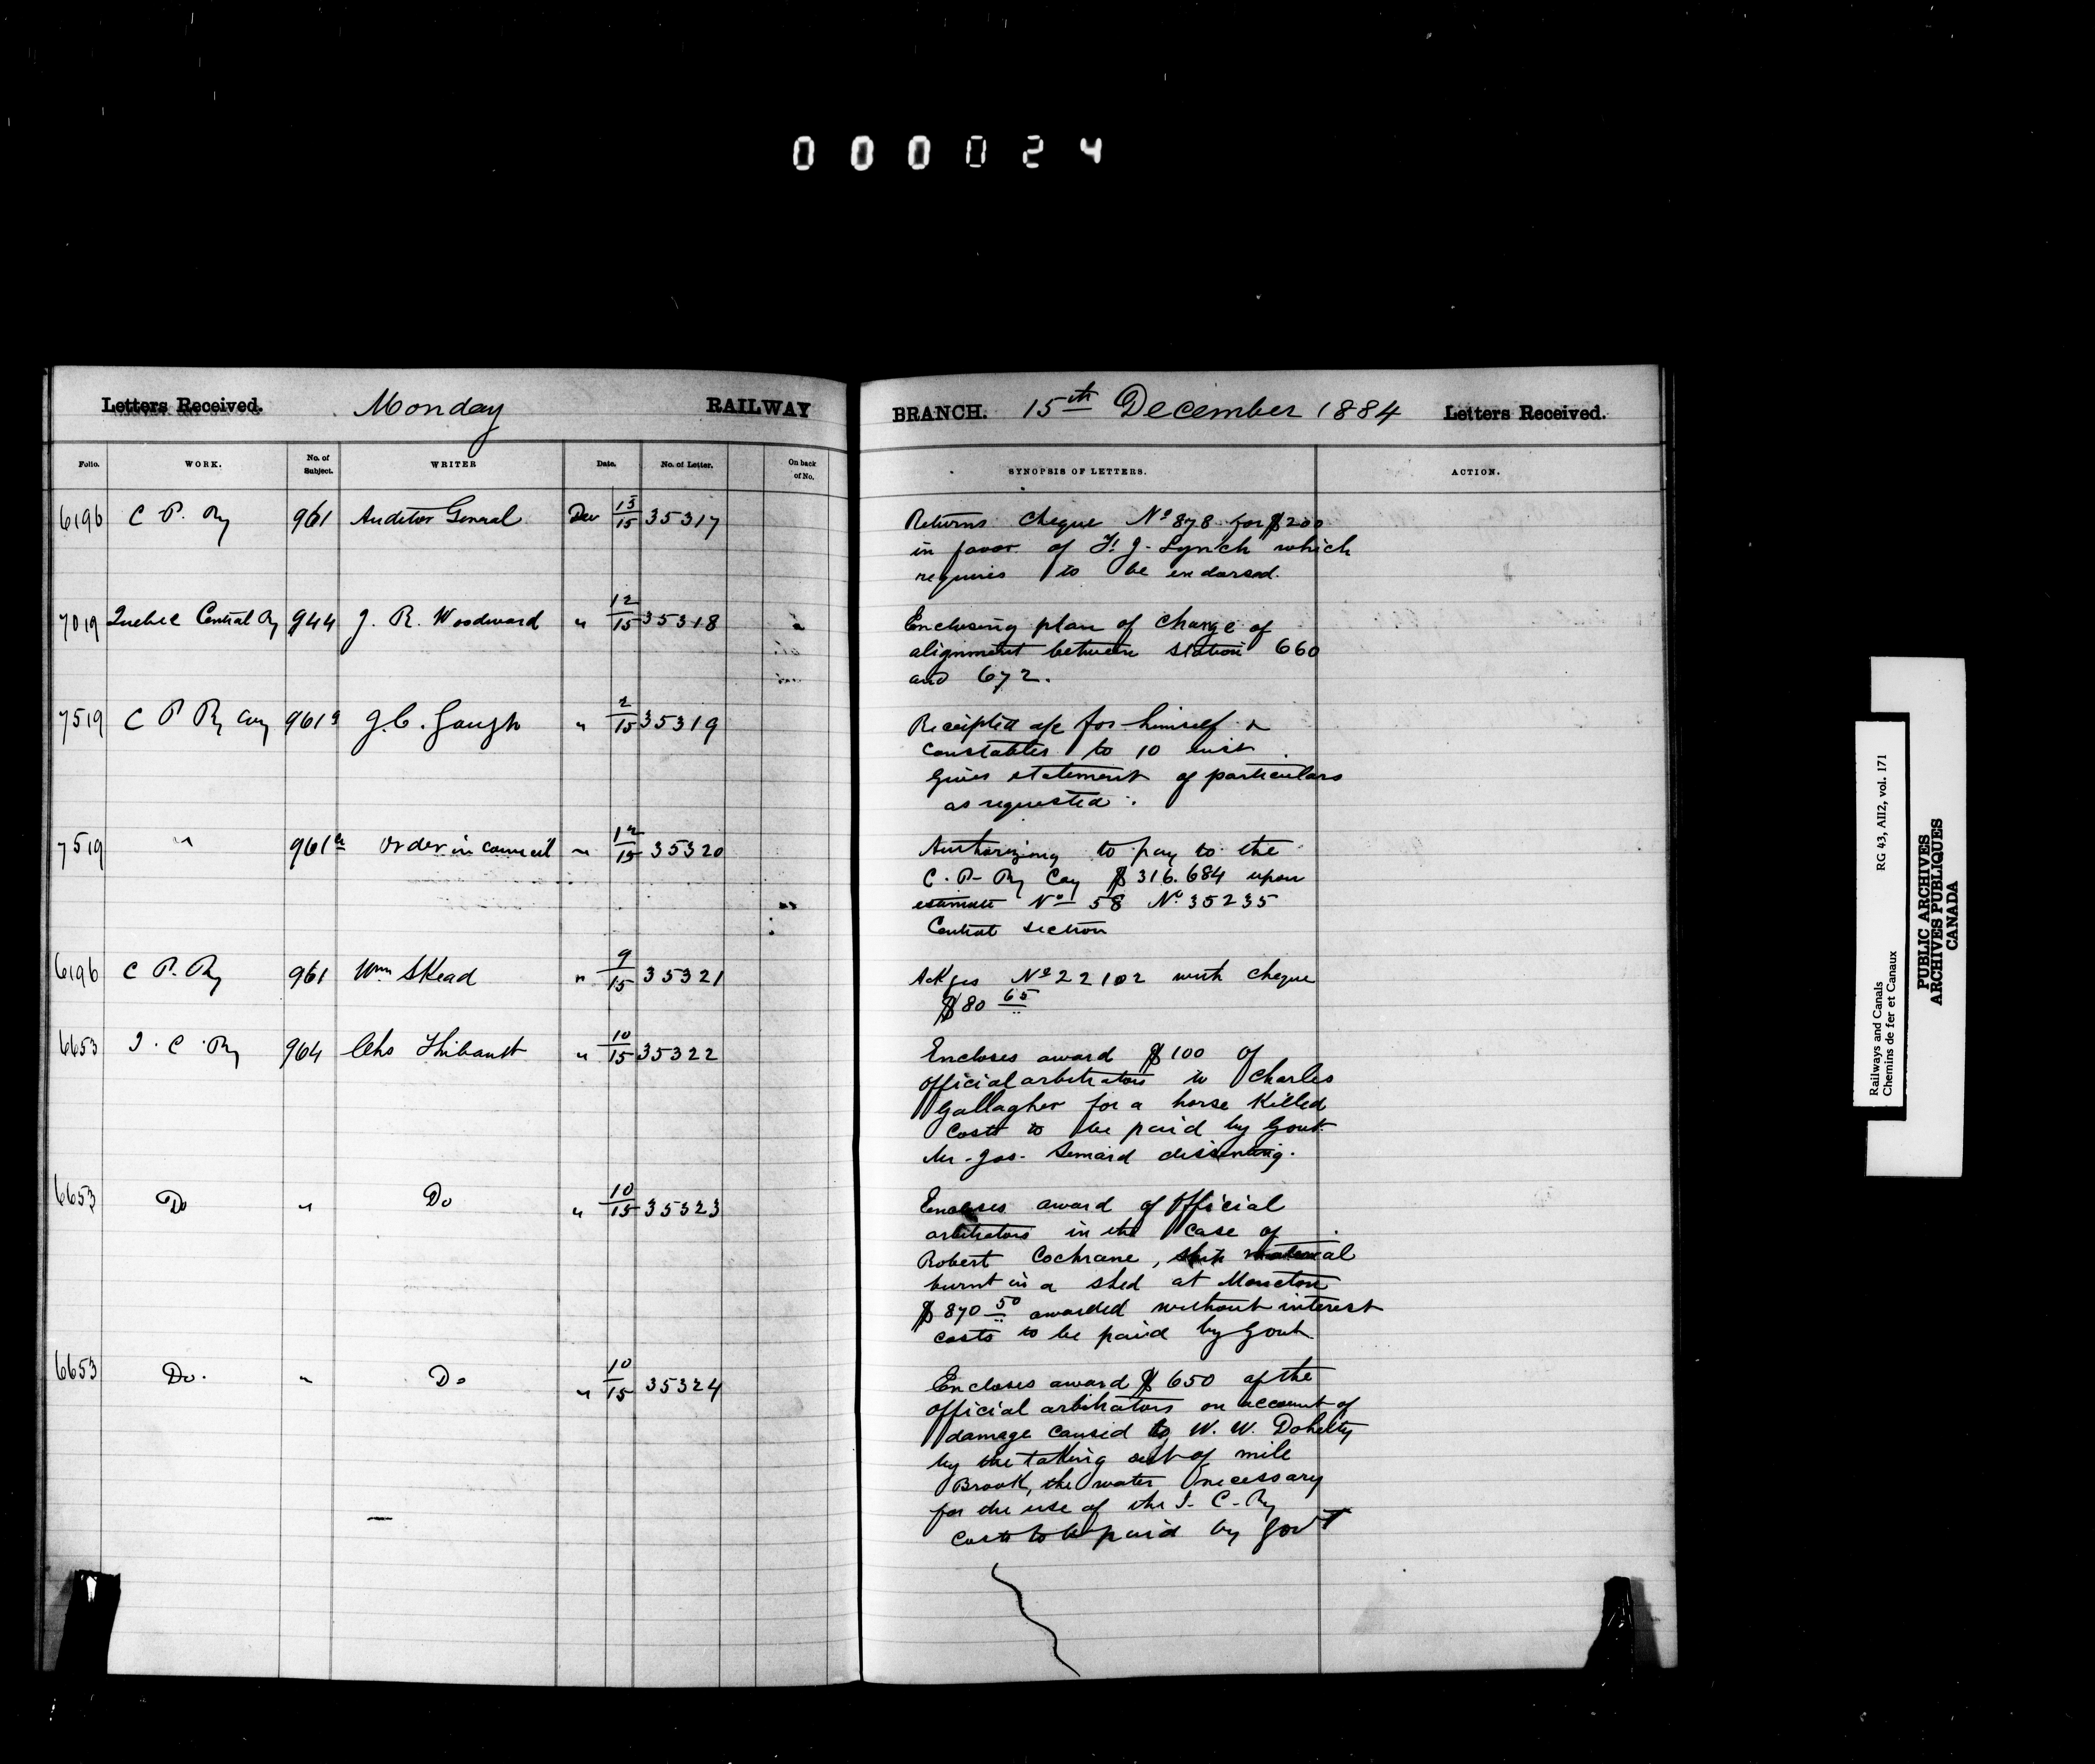 000024
Letters Received. Monday RAILWAY BRANCH. 15th December 1884 Letters Received.
Folio. WORK. No. of Subject. WRITER Date. No. of Letter. On back of No. SYNOPSIS OF LETTERS. ACTION.
6196 C P. Ry 961 Auditor General Dec 13/15 35317 Returns cheque No 878 for $200
in favor of F. J. Lynch which
requires to be endorsed.
7019 Quebec Central Ry 944 J. R. Woodward " 12/15 35318 Enclosing plan of change of
alignment between station 660
and 672.
7519 C P Ry Coy 961a J. C. Gough " 2/15 35319 Receipted a/c for himself &
constables to 10 inst
Gives statement of particulars
as requested.
7519 " 961a Order in council " 12/15 35320 Authorizing to pay to the
C. P. Ry Coy $316.684 upon
estimate No 58 No 35235
Central section
6196 C P. Ry 961 Wm Skead " 9/15 35321 Ackges No 22102 with cheque
$80 65
6653 I. C. Ry 964 Chs Thibault " 10/15 35322 Encloses award $100 of
official arbitrators to Charles
Gallagher for a horse killed
Costs to be paid by Govt.
Mr. Jas. dissenting.
6653 Do " Do " 10/15 35323 Encloses award of Official
arbitrators in the case of
Robert Cochrane, ship material
burnt in a shed at Moncton
$870 50 awarded without interest
costs to be paid by Govt.
6653 Do. " Do " 10/15 35324 Encloses award $650 of the
official arbitrators on account of
damage caused to W. W. Doherty
by the taking out of mile
Brook, the water necessary
for the use of the I. C. Ry
Costs to be paid by Govt
Railways and Canals RG 43, AII2, vol. 171
Chemins de fer et Canaux
PUBLIC ARCHIVES
ARCHIVES PUBLIQUES
CANADA